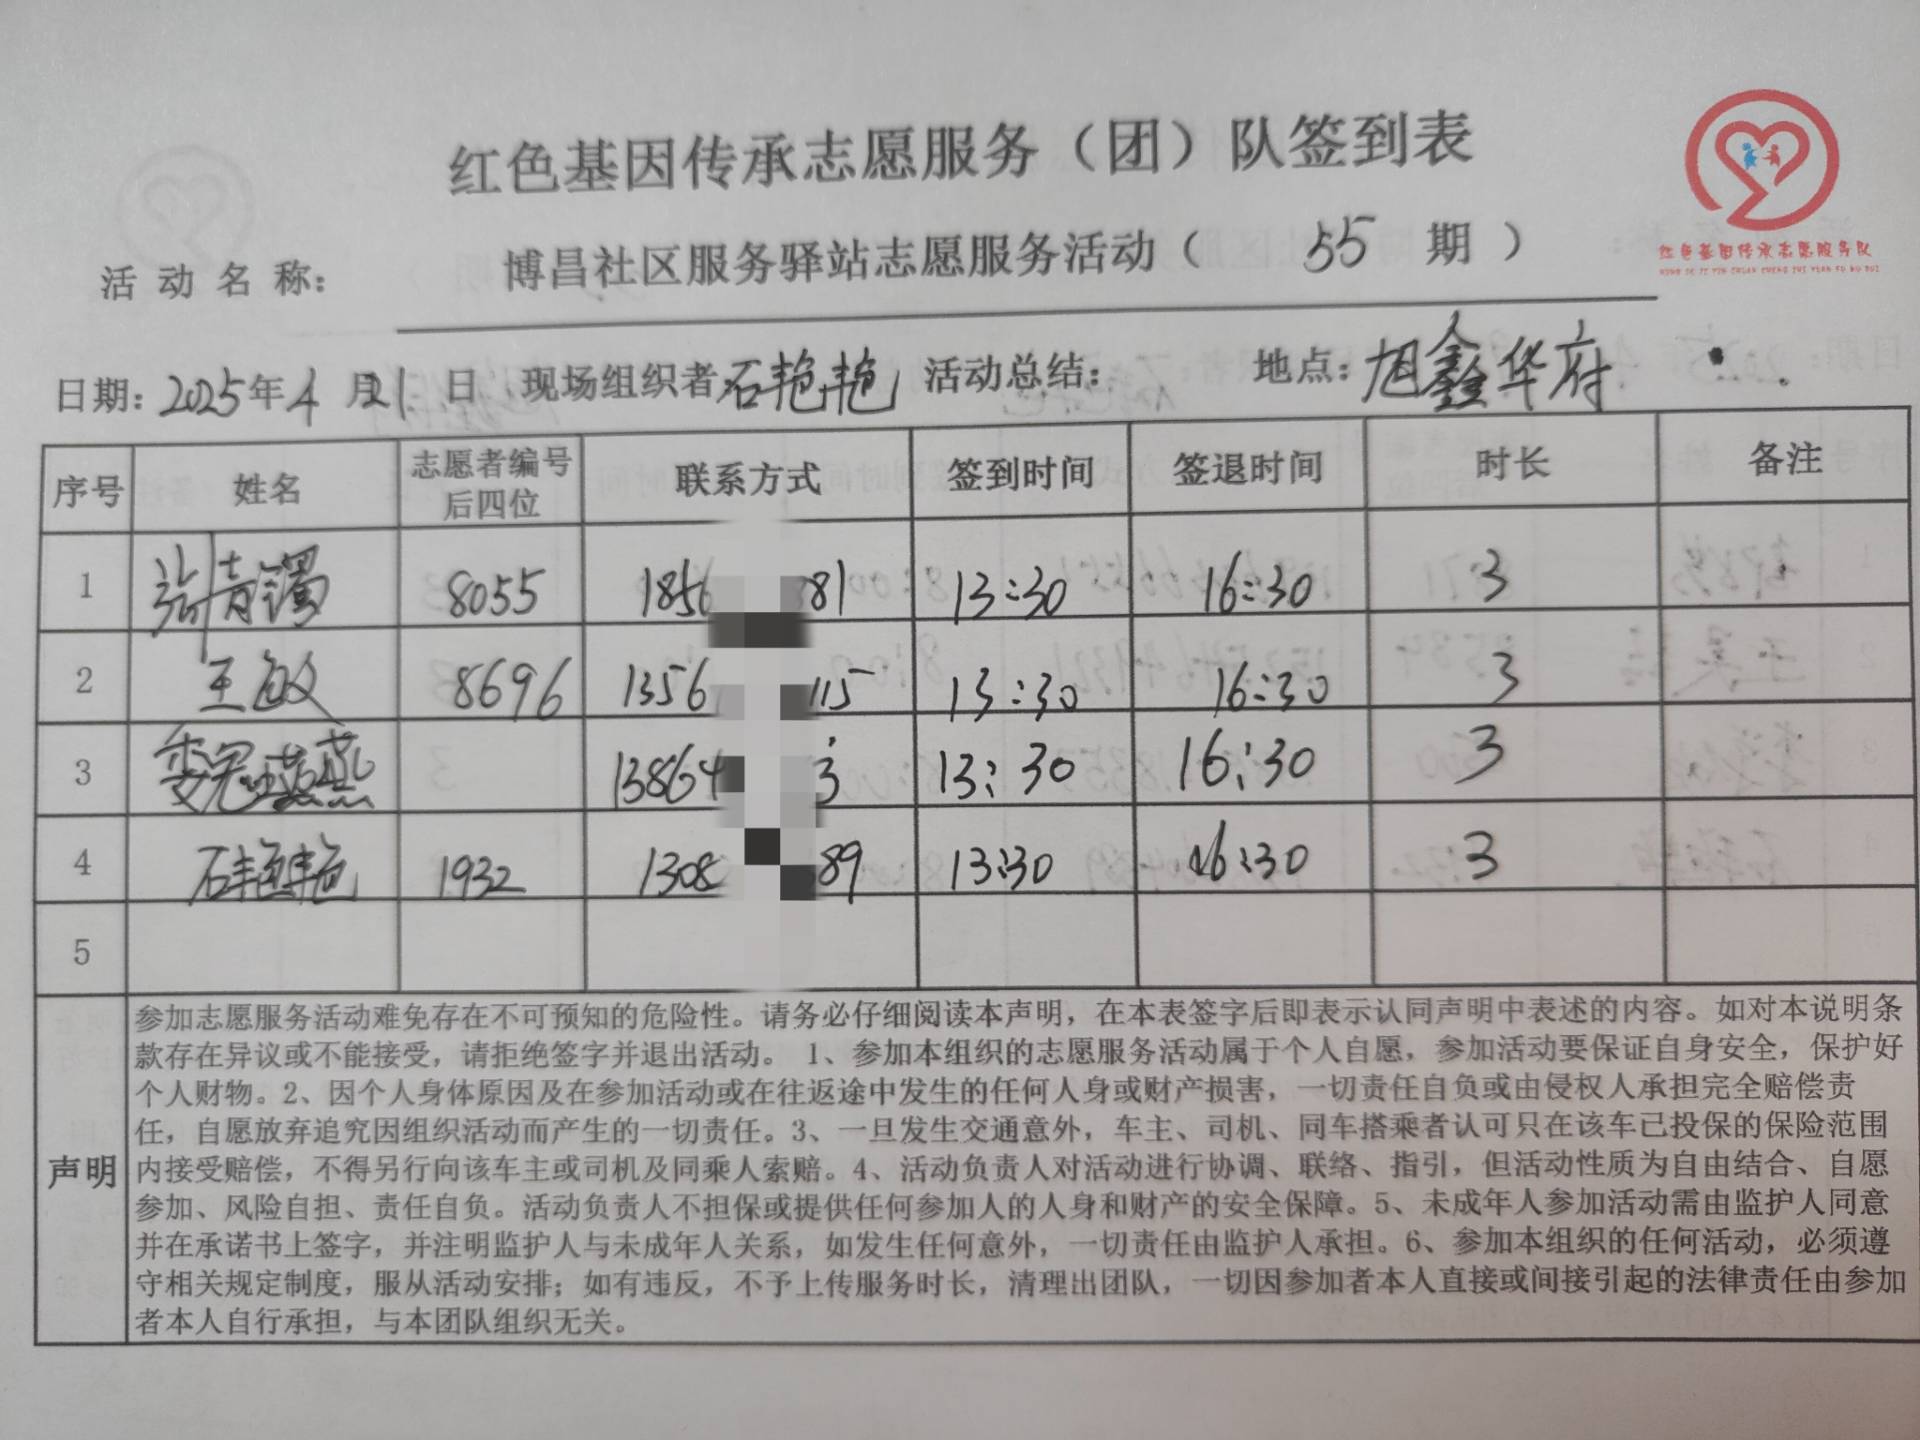 红色基因传承志愿服务（团）队签到表
红色基因传承志愿服务队
HONG SE JI YIN CHUAN CHENG ZHI YUAN FU WU DUI
活动名称：博昌社区服务驿站志愿服务活动（55期）
日期：2025年4月21日 现场组织者：石艳艳 活动总结： 地点：旭鑫华府
序号 姓名 志愿者编号后四位 联系方式 签到时间 签退时间 时长 备注
1 张青镯 8055 1856 81 13:30 16:30 3
2 王敏 8696 1356 115 13:30 16:30 3
3 燕 13864 3 13:30 16:30 3
4 石艳艳 1932 1308 89 13:30 16:30 3
5
声明
参加志愿服务活动难免存在不可预知的危险性。请务必仔细阅读本声明，在本表签字后即表示认同声明中表述的内容。如对本说明条
款存在异议或不能接受，请拒绝签字并退出活动。 1、参加本组织的志愿服务活动属于个人自愿，参加活动要保证自身安全，保护好
个人财物。2、因个人身体原因及在参加活动或在往返途中发生的任何人身或财产损害，一切责任自负或由侵权人承担完全赔偿责
任，自愿放弃追究因组织活动而产生的一切责任。3、一旦发生交通意外，车主、司机、同车搭乘者认可只在该车已投保的保险范围
内接受赔偿，不得另行向该车主或司机及同乘人索赔。4、活动负责人对活动进行协调、联络、指引，但活动性质为自由结合、自愿
参加、风险自担、责任自负。活动负责人不担保或提供任何参加人的人身和财产的安全保障。5、未成年人参加活动需由监护人同意
并在承诺书上签字，并注明监护人与未成年人关系，如发生任何意外，一切责任由监护人承担。6、参加本组织的任何活动，必须遵
守相关规定制度，服从活动安排；如有违反，不予上传服务时长，清理出团队，一切因参加者本人直接或间接引起的法律责任由参加
者本人自行承担，与本团队组织无关。